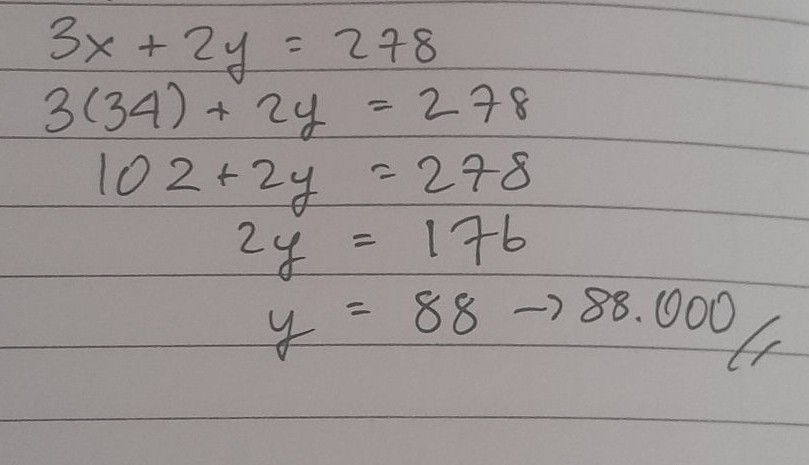 3x + 2y = 278
3(34) + 2y = 278
102 + 2y = 278
2y = 176
y = 88 → 88.000 //